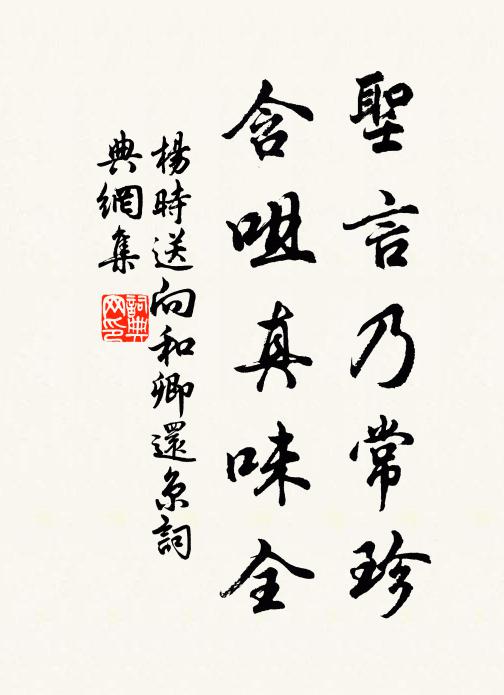 聖言乃常珍
含咀真味全
楊時送向和卿還京詞
典網集
詞典
网印